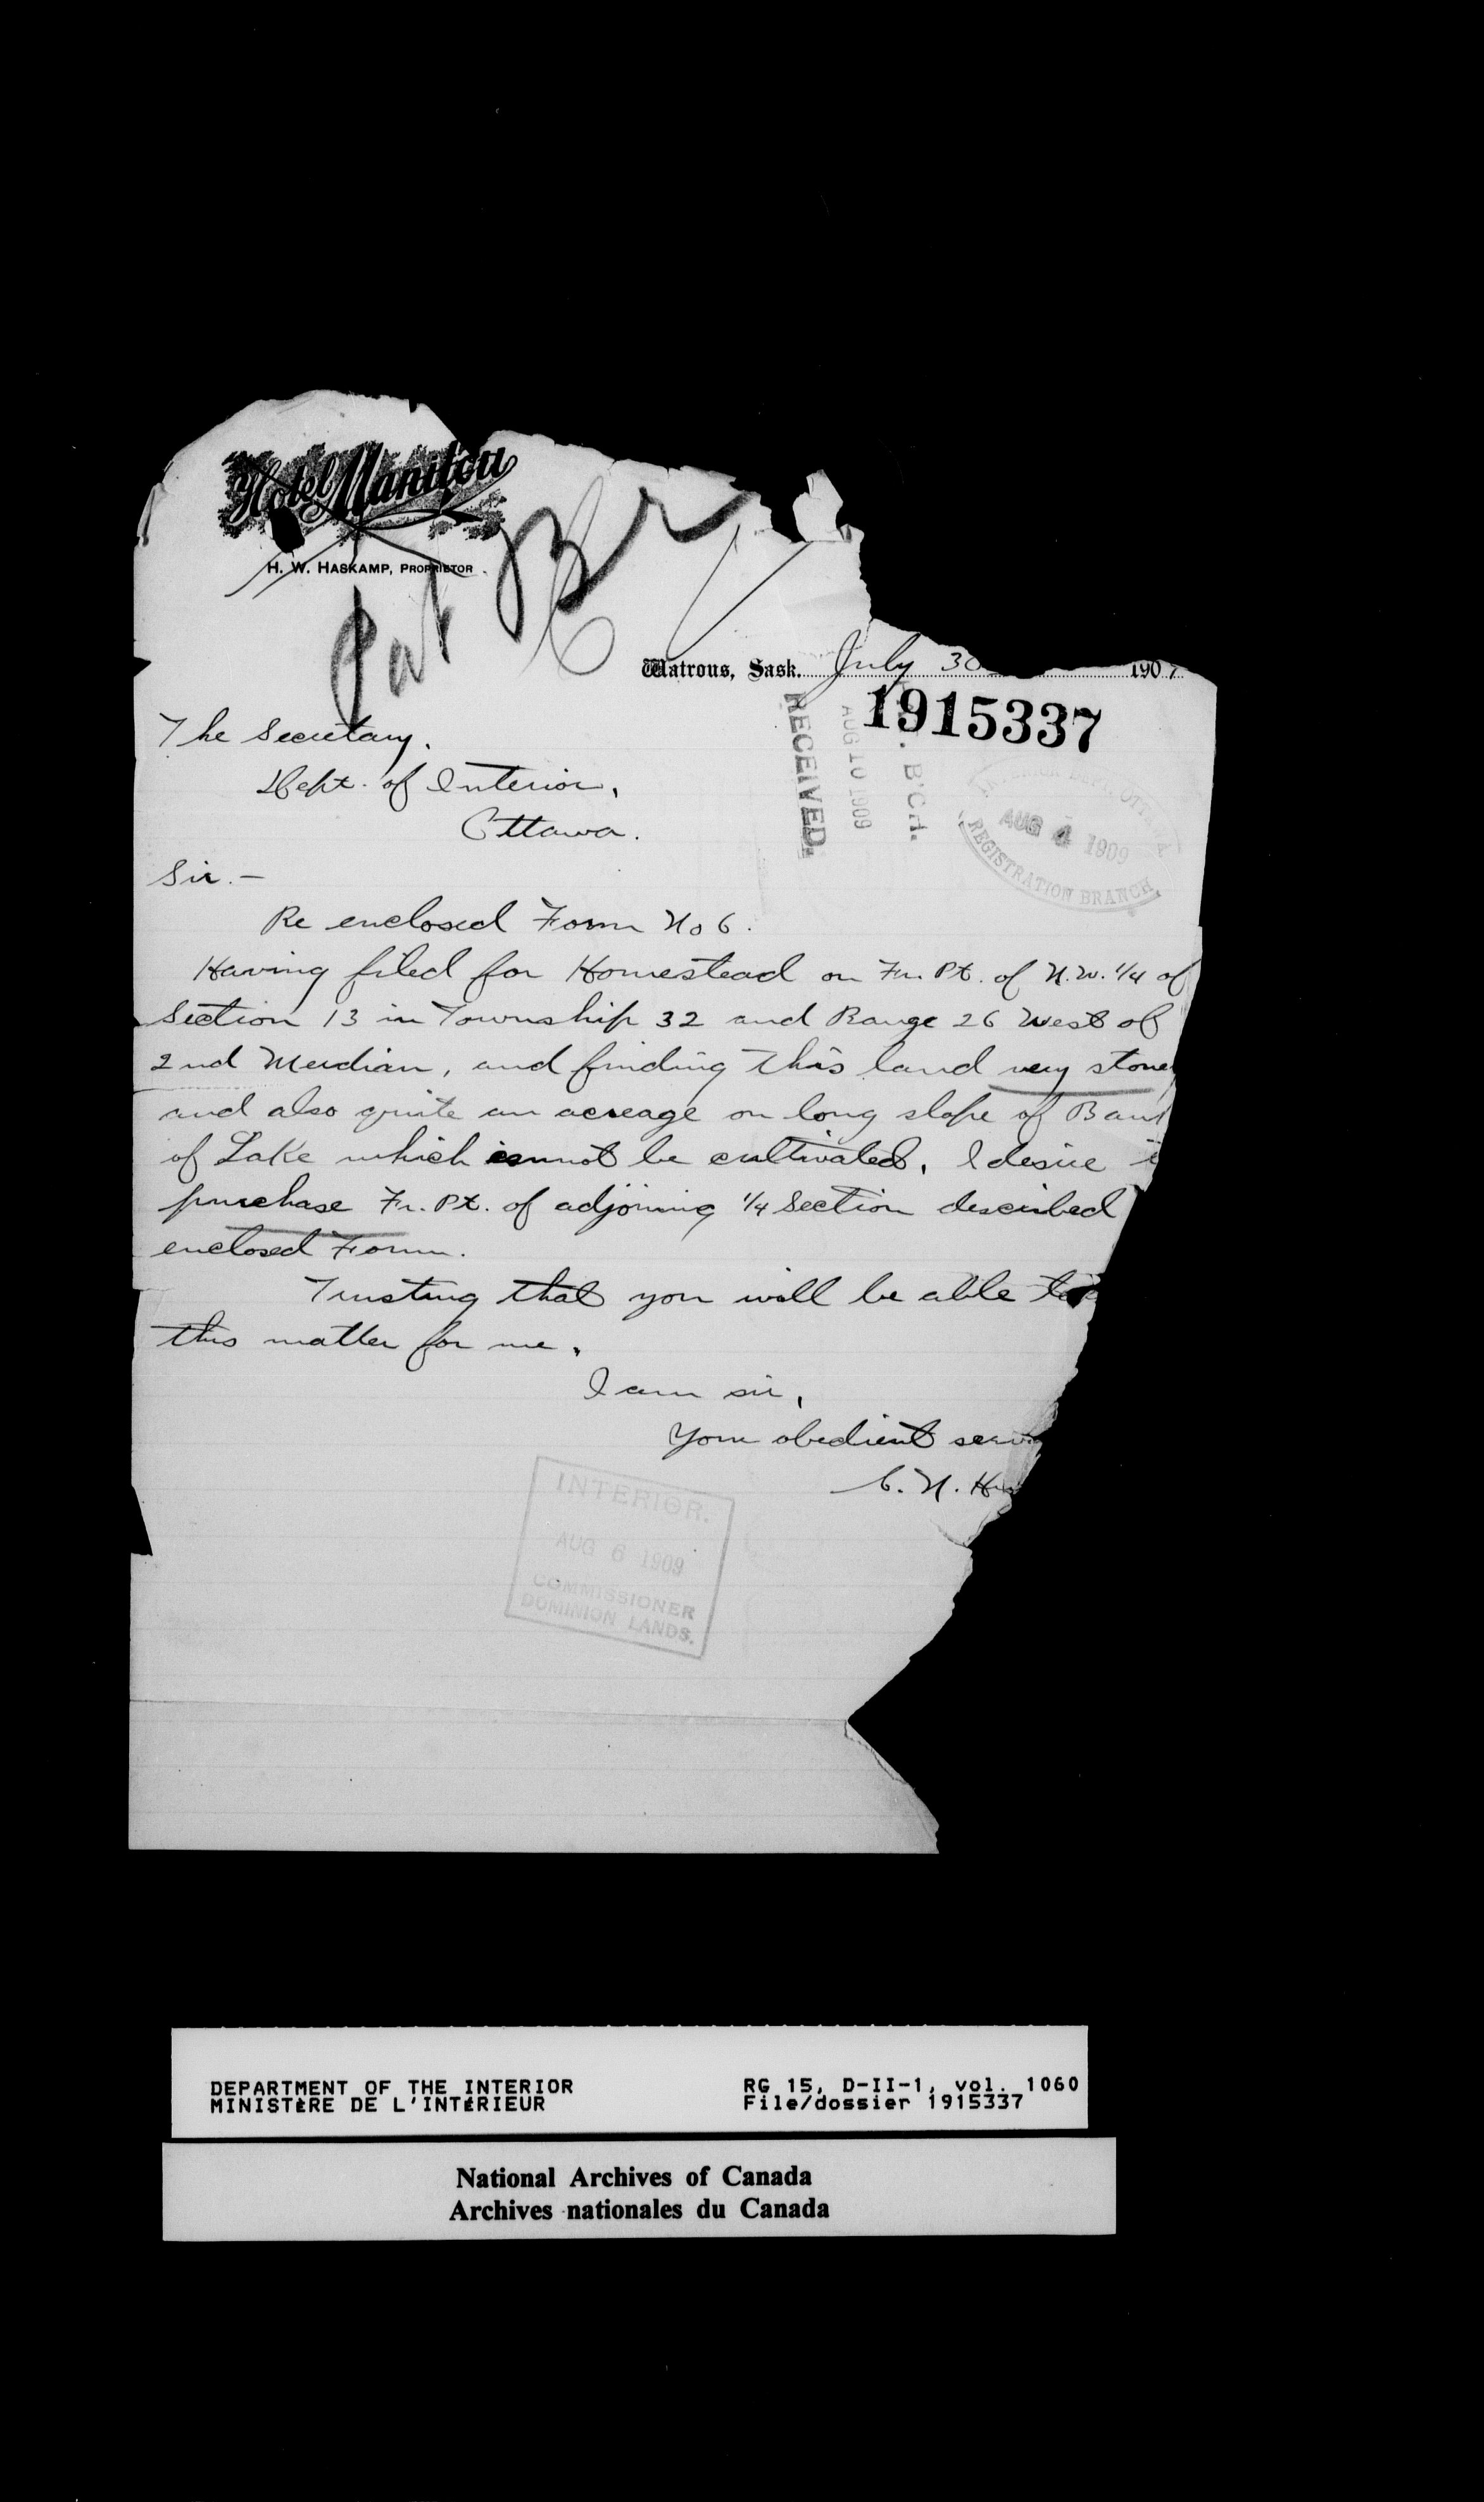 Hotel Manitou
H. W. HASKAMP, PROPRIETOR
Pat Br
Watrous, Sask. July 30 190
1915337
RECEIVED.
AUG 10 1909
B'CH.
INTERIOR DEPT. OTTAWA
AUG 4 1909
REGISTRATION BRANCH.
The Secretary.
Dept. of Interior,
Ottawa.
Sir.—
Re enclosed Form No 6.
Having filed for Homestead on Fr. Pt. of N.W. 1/4 of
Section 13 in Township 32 and Range 26 West of
2nd Meridian, and finding this land very stoney
and also quite an acreage on long slope of Bank
of Lake which cannot be cultivated, I desire
purchase Fr. Pt. of adjoining 1/4 Section described
enclosed Form.
Trusting that you will be able to
this matter for me,
I am sir,
Your obedient serv
C. N. H
INTERIOR.
AUG 6 1909
COMMISSIONER
DOMINION LANDS.
DEPARTMENT OF THE INTERIOR
MINISTÈRE DE L'INTÉRIEUR
RG 15, D-II-1, vol. 1060
File/dossier 1915337
National Archives of Canada
Archives nationales du Canada